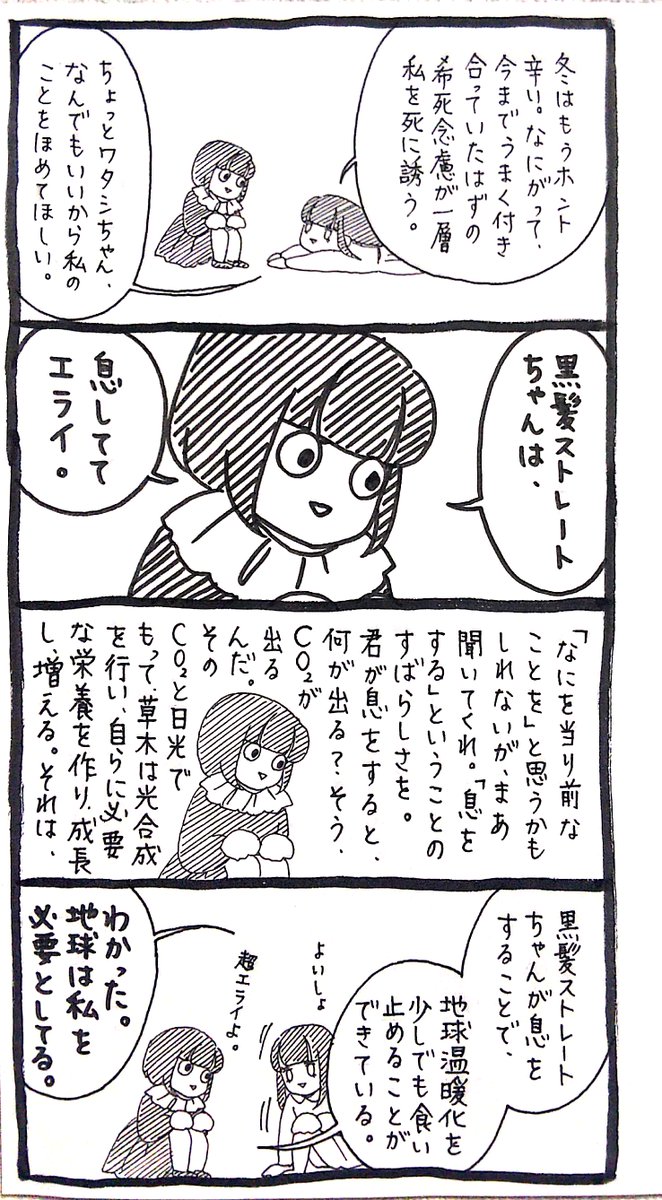 冬はもうホント
辛い。なにがって、
今までうまく付き
合っていたはずの
希死念慮が一層
私を死に誘う。
ちょっとワタシちゃん、
なんでもいいから私の
ことをほめてほしい。
黒髪ストレート
ちゃんは、
息してて
エライ。
「なにを当り前な
ことを」と思うかも
しれないが、まあ
聞いてくれ。「息を
する」ということの
すばらしさを。
君が息をすると、
何が出る?そう、
CO₂が
出る
んだ。
その
CO₂と日光で
もって、草木は光合成
を行い、自らに必要
な栄養を作り、成長
し、増える。それは、
黒髪ストレート
ちゃんが息を
することで、
地球温暖化を
少しでも食い
止めることが
できている。
よいしょ
超エライよ。
わかった。
地球は私を
必要としてる。